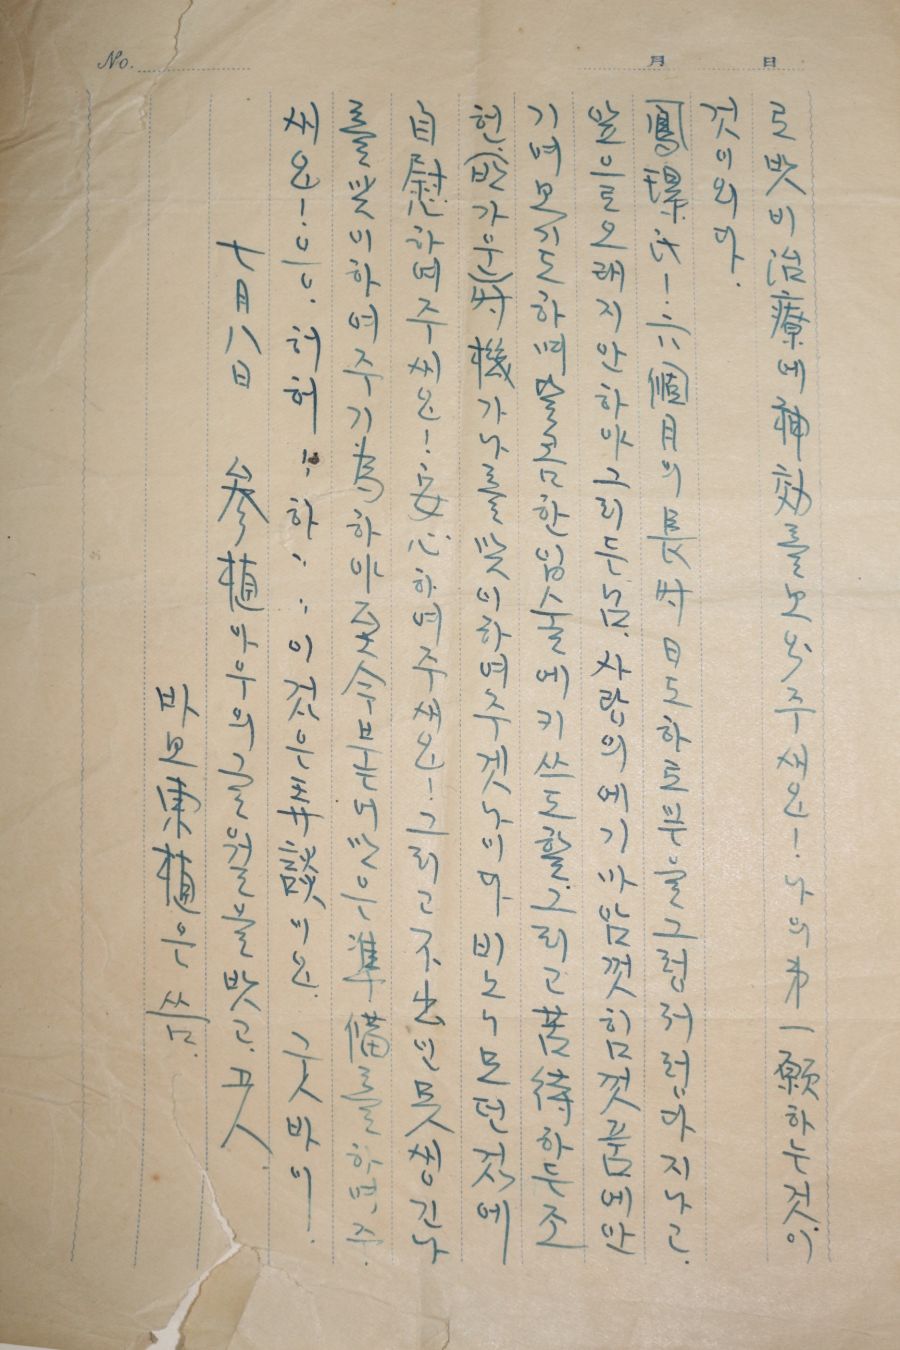 No.
月 日
로밧비治療에神効를보아주새요! 나의第一願하는것이
것이외다.
鳳環氏! 六個月의長時日도하로부을그럭저럭다지나고.
앞으로오래지안하야그리든님. 사랑의에기마암껏힘껏품에안
기여보기도하며달콤한입술에키쓰도할. 그리고苦待하든조
현(반가운)時機가나를맞이하여주겟나이다 비노니모던것에
自慰하며주세요! 安心하여주세요! 그리고不出넌못생긴나
를맞이하여주기爲하야至今부터많은準備를하며주.
세요! 응응. 허허‥하‥‥이것은弄談이요. 굿바이!
七月八日 參植아우의글월을받고. 곳
바보東植은 씀.